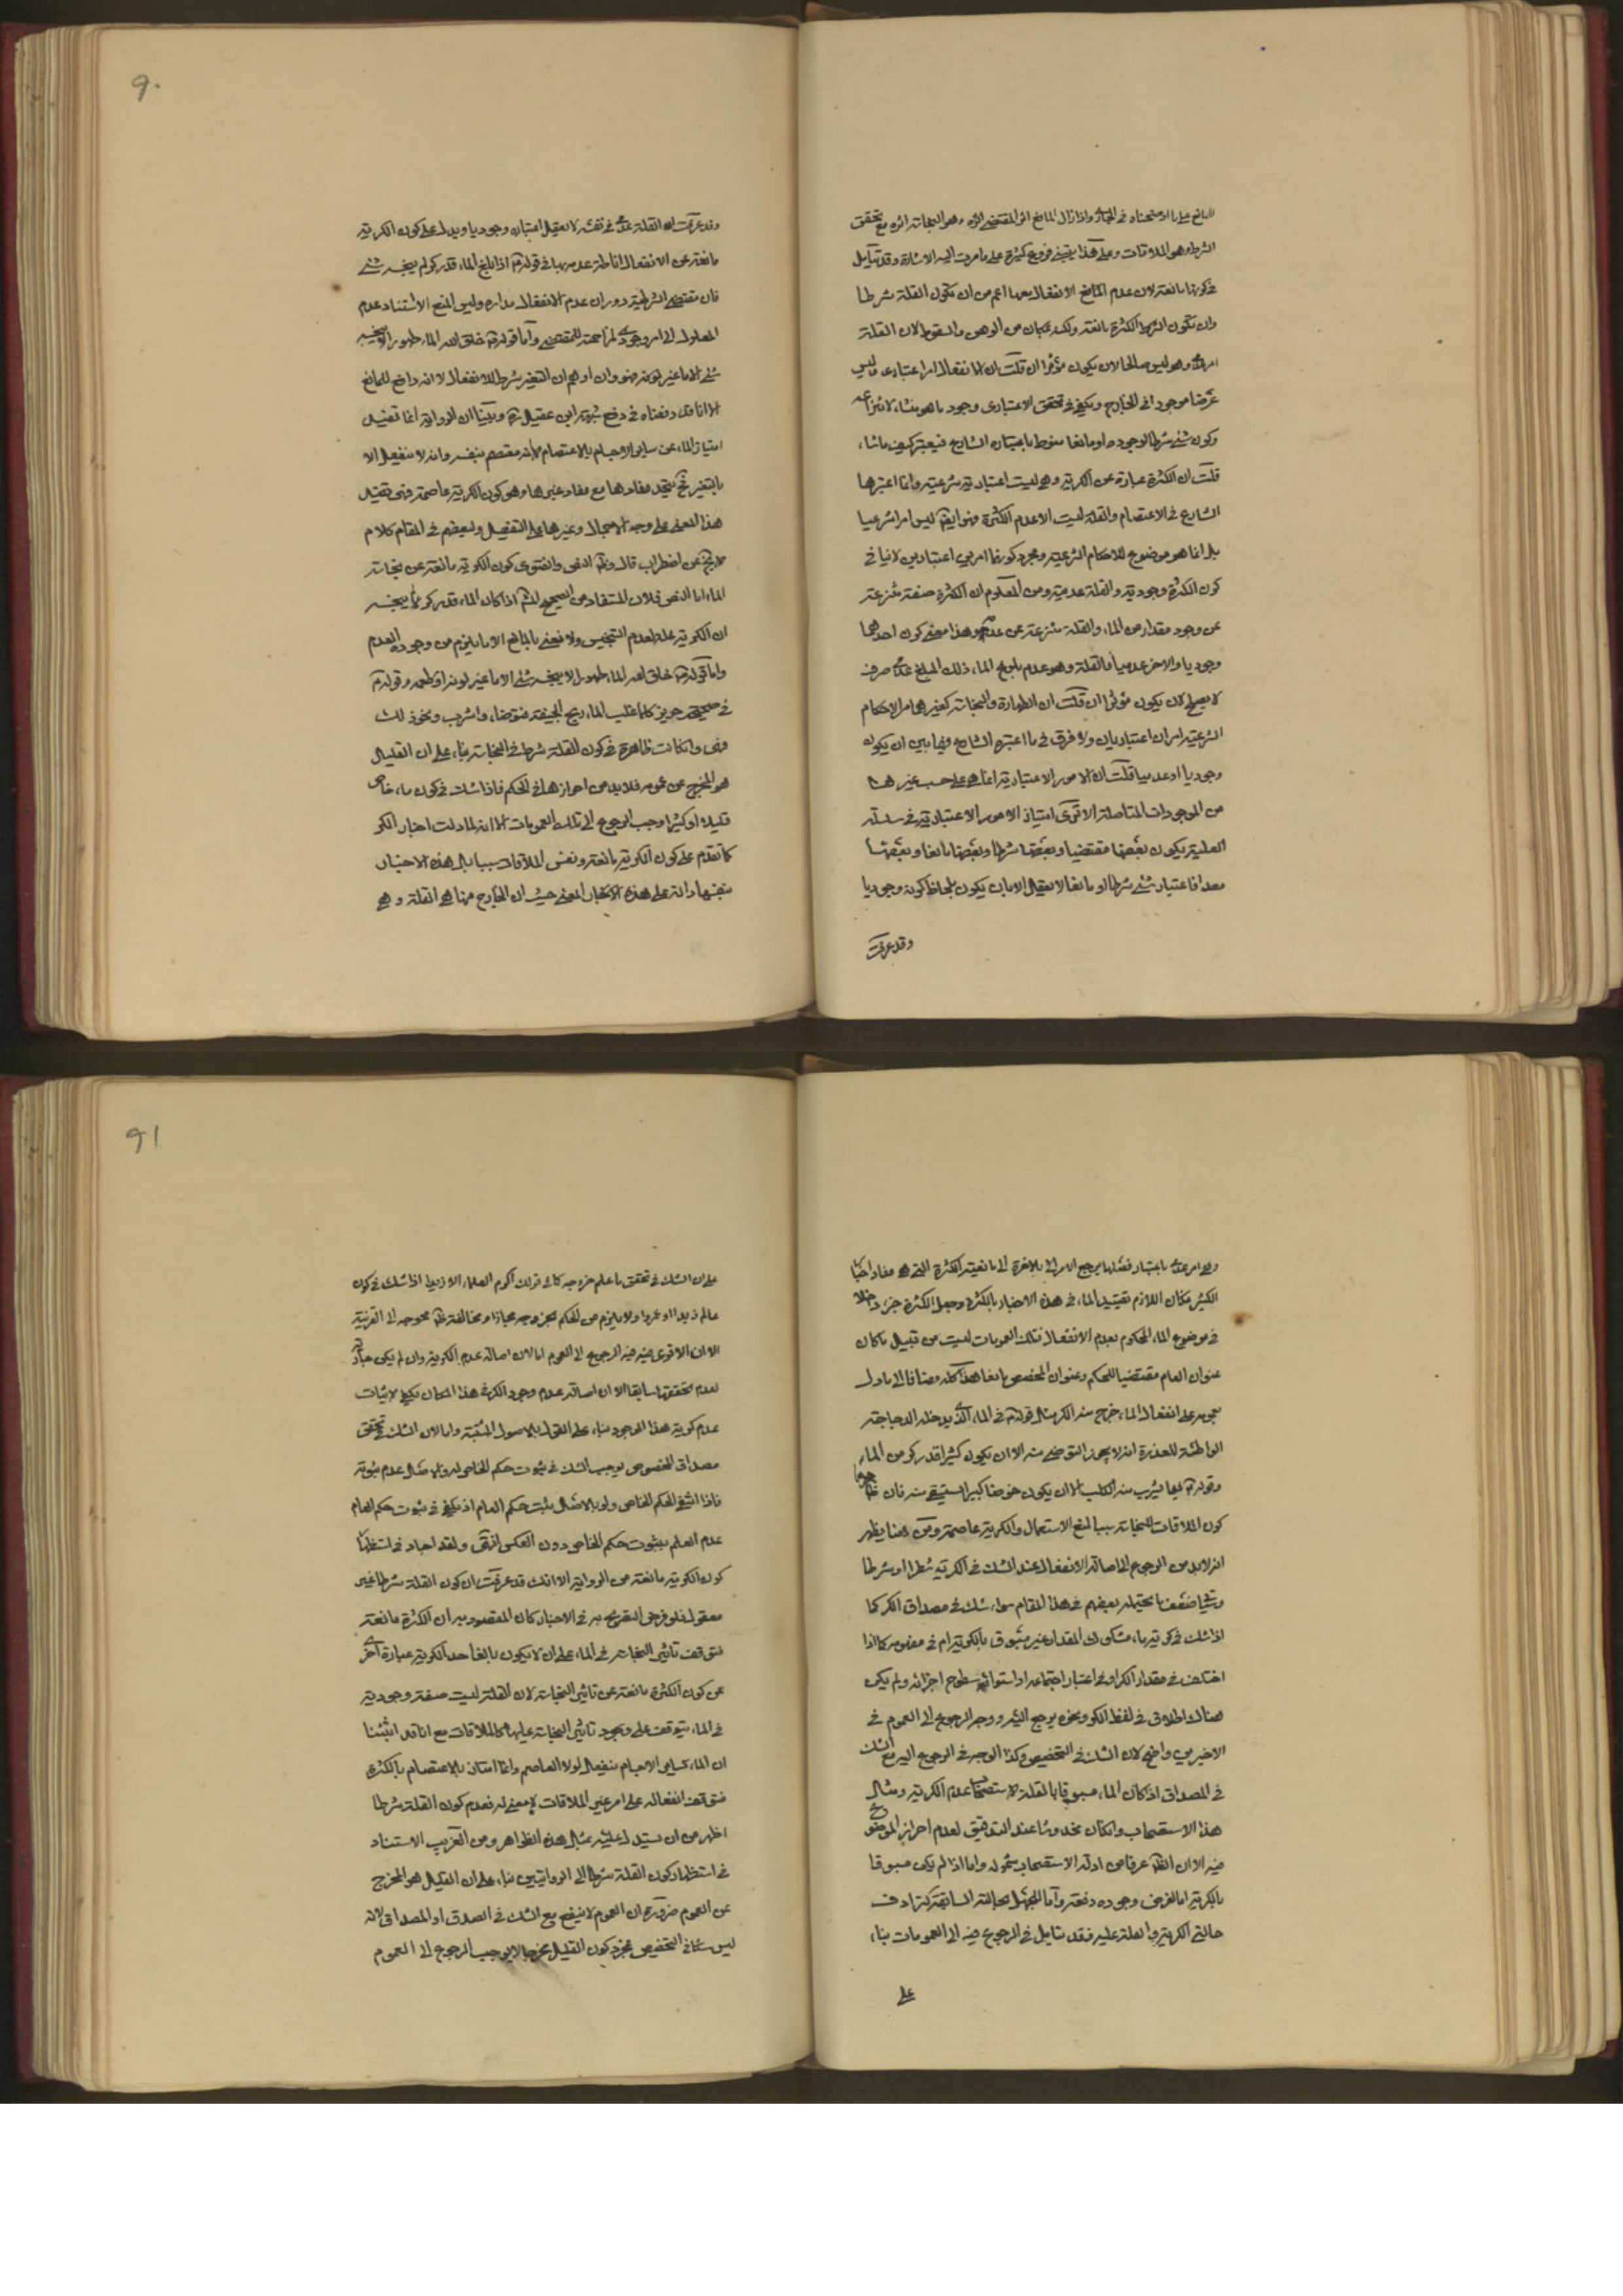 للمانع عليها الاستحناء في المجاز واذا زال المانع اثر المقتضى اثره وهو النجاسة اثره مع تحقق
الشرط وهو الملاقات وعلى هذا يبتنى فروع كثيرة على ما مرت اليه الاشارة وقد يتأمل
في كونها مانعة لان عدم المانع الانفعال بعدها اعم من ان يكون القلة شرطا
وان يكون الشرط الكثرة مانعة ولكنه بمكان من الوهن والسقوط لان القلة
امر عدمى وهو ليس صالحا لان يكون مؤثرا ان قلت ان الانفعال امر اعتبارى وليس
عرضا موجودا في الخارج ويكفى في تحقق الاعتبارى وجود ما هو منشاء لانتزاعه
وكون شئ شرطا لوجوده او مانعا منوط باعتبار الشارع فيعتبر كيف ما شاء
قلت ان الكثرة عبارة عن الكرية وهى ليست اعتبارية شرعية وانما اعتبرها
الشارع في الاعتصام والقلة ليست الا عدم الكثرة فهو ايضا ليس امرا شرعيا
بل انما هو موضوع للاحكام الشرعية ومجرد كونهما امرين اعتباريين لا ينافى
كون الكثرة وجودية والقلة عدمية ومن المعلوم ان الكثرة صفة منتزعة
عن وجود مقدار من الماء والقلة منتزعة عن عدمه وهذا معنى كون احدهما
وجوديا والاخر عدميا فالقلة وهو عدم بلوغ الماء ذلك المبلغ عدم صرف
لا يصلح لان يكون مؤثرا ان قلت ان الطهارة والنجاسة كغيرهما من الاحكام
الشرعية امران اعتباريان ولا فرق في ما اعتبره الشارع فيها بين ان يكون
وجوديا او عدميا قلت ان الامور الاعتبارية انما هى على حسب غيرها
من الموجودات المتاصلة الا ترى امتياز الامور الاعتبارية في سلسلة
العلية بكون بعضها مقتضيا وبعضها شرطا وبعضها مانعا وبعضها
معدا فاعتبار شئ شرطا او مانعا لا يعقل الا بان يكون بلحاظ كونه وجوديا
وقد عرفت
وقد عرفت ان القلة عدم في نفسه لا يعقل اعتباره وجوديا ويدل على كون الكرية
مانعة عن الانفعال اناطة عدمه بها في قوله ع اذا بلغ الماء قدر كر لم ينجسه شئ
فان مقتضى الشرطية دوران عدم الانفعال مداره وليس المنع الا استناد عدم
المعلول الى امر وجودى لمزاحمة المقتضى وأما قوله ع خلق الله الماء طهورا لا ينجسه
شئ الا ما غير لونه فهو وان اوهم ان التغير شرط للانفعال لا انه دافع للمانع
الا انا قد دفعناه في دفع شبهة ابن عقيل ره وبينا ان الرواية انما تفيد
امتياز الماء عن ساير الاجسام بالاعتصام لانه معتصم بنفسه وانه لا ينفعل الا
بالتغير فح يتحد مفادها مع مفاد غيرها وهو كون الكرية عاصمة فهى تفيد
هذا المعنى على وجه الاجمال وغيرها على التفصيل ولبعضهم في المقام كلام
لا يخ عن اضطراب قال وظ النص والفتوى كون الكرية مانعة عن نجاسة
الماء اما النص فلان المستفاد من الصحيح المشهور اذا كان الماء قدر كر لم ينجسه
ان الكرية علة لعدم التنجيس ولا نعنى بالمانع الا ما يلزم من وجوده العدم
واما قوله ع خلق الله الماء طهورا لا ينجسه شئ الا ما غير لونه او طعمه وقوله ع
في صحيحة حريز كلما غلب الماء ريح الجيفة فتوضأ واشرب ونحو ذلك
فهى وان كانت ظاهرة في كون القلة شرطا في النجاسة بناء على ان القليل
هو المخرج عن عمومه فلابد من احرازها في الحكم فاذا شك في كون ماء خاص
قليلا او كثيرا وجب الرجوع الى تلك العمومات الا انه لما دلت اخبار الكر
كما تقدم على كون الكرية مانعة ونفس الملاقات سببا بل هذه الاخبار
بنفسها دالة على هذه الاخبار المعنى حيث ان الخارج منها هى القلة وهى
وهى امر عدمى باعتبار فصلها يرجع الامر الى بالاخرة الى مانعية الكثرة التى هى مفاد اخبار
الكر فكان اللازم تقييد الماء في هذه الاخبار بالكثرة وجعل الكثرة جزء داخلا
في موضوع الماء المحكوم بعدم الانفعال فتلك العمومات ليست من قبيل ما كان
عنوان العام مقتضيا للحكم وعنوان المخصص مانعا هذا كله مضافا الى ما دل
بعمومه على انفعال الماء خرج منه الكر مثل قوله ع في الماء الذى يدخله الدجاجة
الواطئة للعذرة انه لا يجوز التوضى منه الا ان يكون كثيرا قدر كر من الماء
وقوله ع فيما يشرب منه الكلب الا ان يكون حوضا كبيرا يستقى منه فان ظاهرهما
كون الملاقات للنجاسة سببا لمنع الاستعمال والكرية عاصمة ومن هنا يظهر
انه لابد من الرجوع الى اصالة الانفعال عند الشك في الكرية شطرا او شرطا
وضعف ما يحتمله بعضهم في هذا المقام سواء شك في مصداق الكر كما
اذا شك في كرية ماء مشكوك المقدار غير مسبوق بالكرية ام في مفهومه كما اذا
اختلف في مقدار الكر او في اعتبار اجتماعه او استوائه سطوح اجزائه ولم يكن
هناك اطلاق في لفظ الكر ونحوه يرجع اليه ووجه الرجوع الى العموم في
الاخيرين واضح لان الشك في التخصيص وكذا الوجه في الرجوع اليه مع الشك
في المصداق اذا كان الماء مسبوقا بالقلة لاستصحاب عدم الكرية ومثال
هذا الاستصحاب وان كان مخدوشا عند التدقيق لعدم احراز الموضوع
فيه الا ان الظ عرفا من ادلة الاستصحاب شموله واما اذا لم يكن مسبوقا
بالكرية اما لفرض وجوده دفعة واما للجهل بحالته السابقة كترادف
حالتى الكرية والقلة عليه فقد يتامل في الرجوع فيه الى العمومات بناء
على
على ان الشك في تحقق ما علم خروجه كما في قولك اكرم العلماء الا زيدا اذا شك في كون
عالم زيدا او عمروا ولا يلزم من الحكم بخروجه مجاز ولا مخالفة ظ محوجة الى القرينة
الا ان الاقوى فيه الرجوع الى العموم اما لان اصالة عدم الكرية وان لم يكن جارية
لعدم تحققها سابقا الا ان اصالة عدم وجود الكر في هذا المكان يكفى لاثبات
عدم كرية هذا الموجود بناء على القول بالاصول المثبتة واما لان الشك في تحقق
مصداق المخصص يوجب الشك في ثبوت حكم الخاص له والاصل عدم ثبوته
فاذا انتفى الحكم الخاص ولو بالاصل ثبت حكم العام اذ يكفى في ثبوت حكم العام
عدم العلم بثبوت حكم الخاص دون العكس انتهى ولقد اجاد في استظهار
كون الكرية مانعة من الرواية الا انك قد عرفت ان كون القلة شرطا غير
معقول فلو فرض التصريح به في الاخبار كان المقصود به ان الكثرة مانعة
فتوقف تاثير النجاسة في الماء على ان لا يكون بالغا حد الكرية عبارة اخرى
عن كون الكثرة مانعة عن تاثير النجاسة لان القلة ليست صفة وجودية
في الماء يتوقف على وجود تاثير النجاسة عليها كالملاقات مع انا قد اثبتنا
ان الماء كساير الاجسام ينفعل لولا العاصم وانما امتاز بالاعتصام بالكثرة
فتوقف انفعاله على امر غير الملاقات لا معنى له فعدم كون القلة شرطا
اظهر من ان يستدل عليه بمثل هذه الظواهر ومن الغريب الاستناد
في استظهار كون القلة شرطا الى الروايتين بناء على ان القليل هو المخرج
عن العموم ضرورة ان العموم لا ينفع مع الشك في الصدق او المصداق لانه
ليس شكا في التخصيص فمجرد كون القليل مخرجا لا يوجب الرجوع الى العموم